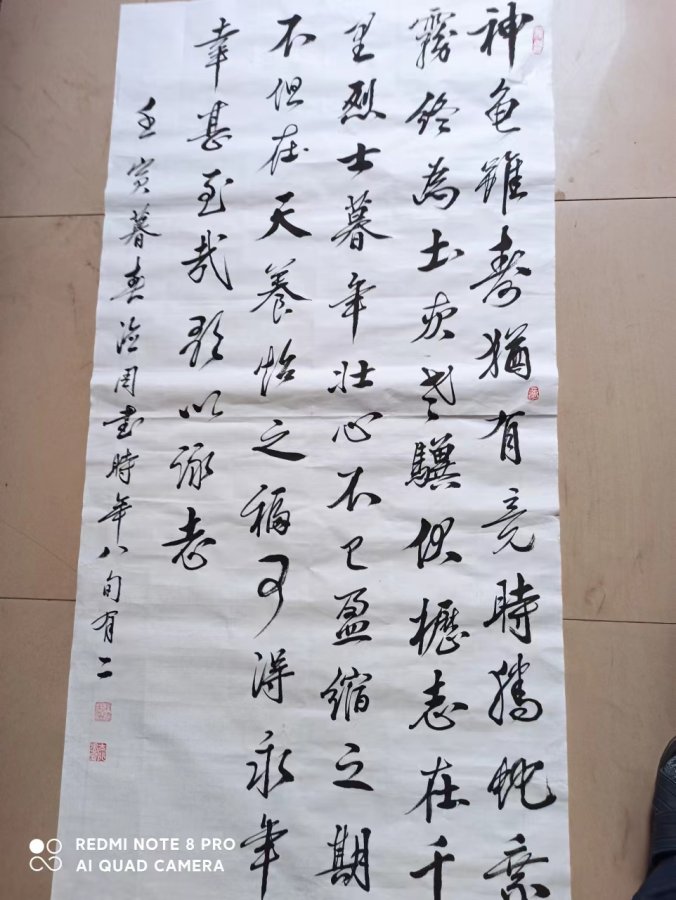 神龟雖壽猶有竟時騰蛇乘
霧終為土灰老驥伏櫪志在千
里烈士暮年壯心不已盈縮之期
不但在天養怡之福可得永年
幸甚至哉歌以詠志
壬寅暮春周書時年八旬有二
REDMI NOTE 8 PRO
AI QUAD CAMERA